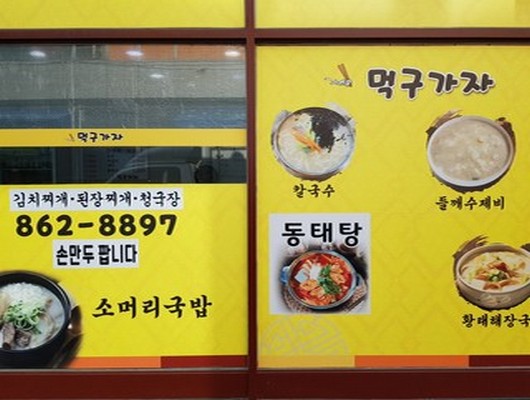 먹구가자
김치찌개·된장찌개·청국장
862-8897
손만두 팝니다
소머리국밥
먹구가자
칼국수
들깨수제비
동태탕
황태해장국